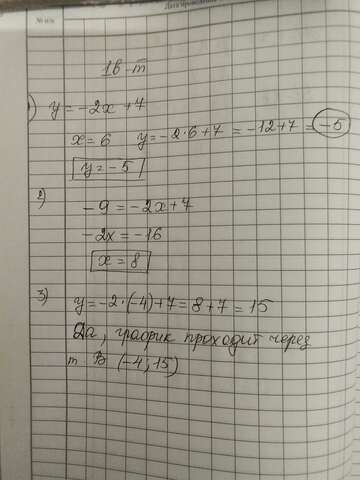 № п/п
Дата проведения
1в-т
) y = -2x + 7
x = 6 y = -2·6+7 = -12+7 = -5
y = -5
2)
-9 = -2x+7
-2x = -16
x = 8
3)
y = -2·(-4)+7 = 8+7 = 15
Да, график проходит через
т В (-4; 15)